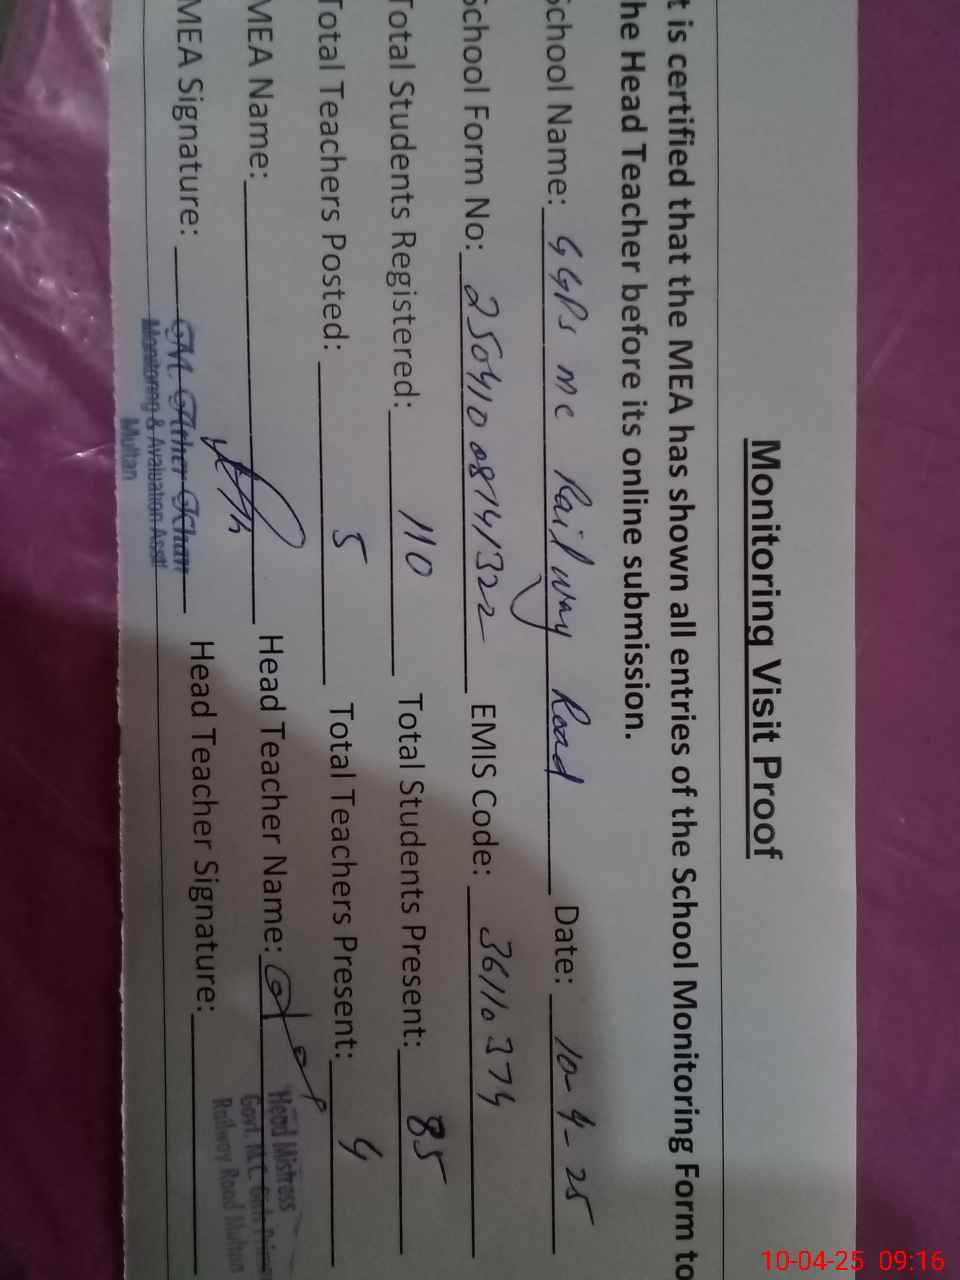 Monitoring Visit Proof
t is certified that the MEA has shown all entries of the School Monitoring Form to
he Head Teacher before its online submission.
School Name: GGPS MC Railway Road Date: 10-4-25
School Form No: 25041008141322 EMIS Code: 36110374
Total Students Registered: 110 Total Students Present: 85
Total Teachers Posted: 5 Total Teachers Present: 4
MEA Name: Head Teacher Name:
MEA Signature: Head Teacher Signature:
GM. Ather Khan
Monitoring & Avaluation Asstt
Multan
Head Mistress
Govt. M.C. Girls
Railway Road Multan
10-04-25 09:16